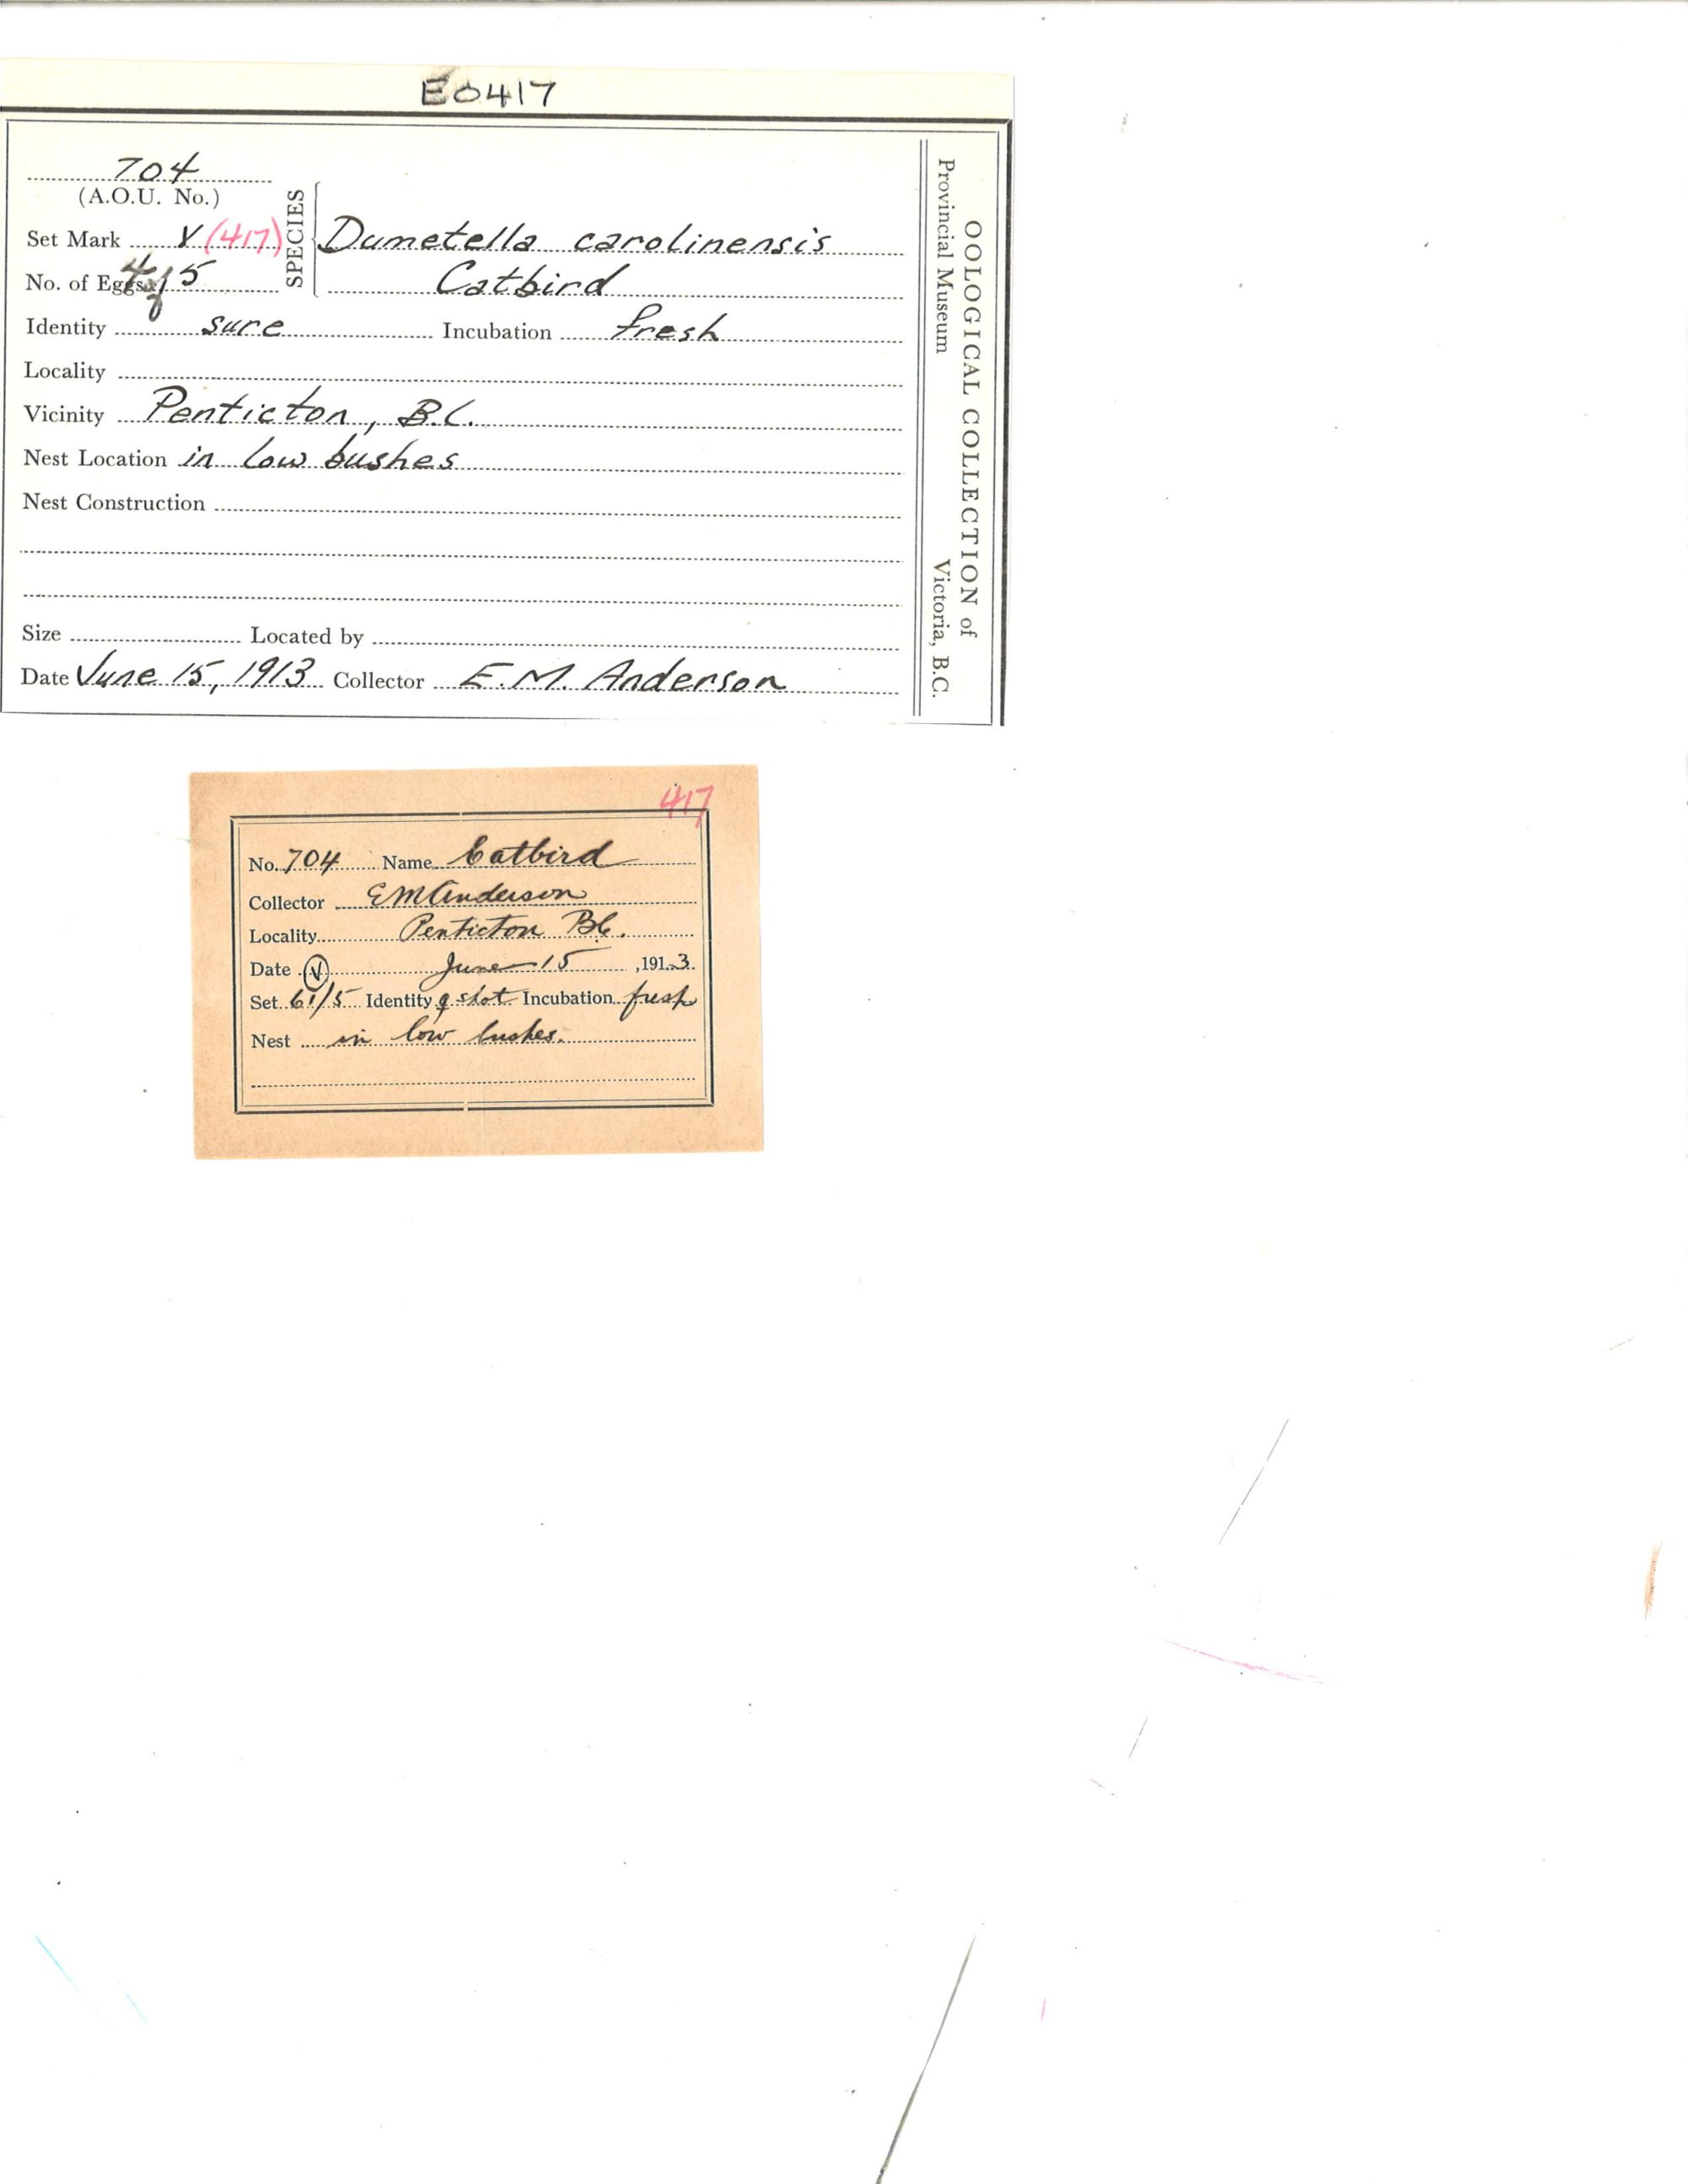 E0417
704
(A.O.U. No.)
Set Mark V (417)
No. of Eggs 4 of 5
SPECIES
Dumetella carolinensis
Catbird
Identity sure Incubation fresh
Locality
Vicinity Penticton, B.C.
Nest Location in low bushes
Nest Construction
Size Located by
Date June 15, 1913 Collector E.M. Anderson
OOLOGICAL COLLECTION of
Provincial Museum Victoria, B.C.
417
No. 704 Name Catbird
Collector E M Anderson
Locality Penticton BC.
Date V June 15, 1913.
Set /5 Identity shot Incubation fresh
Nest in low bushes.